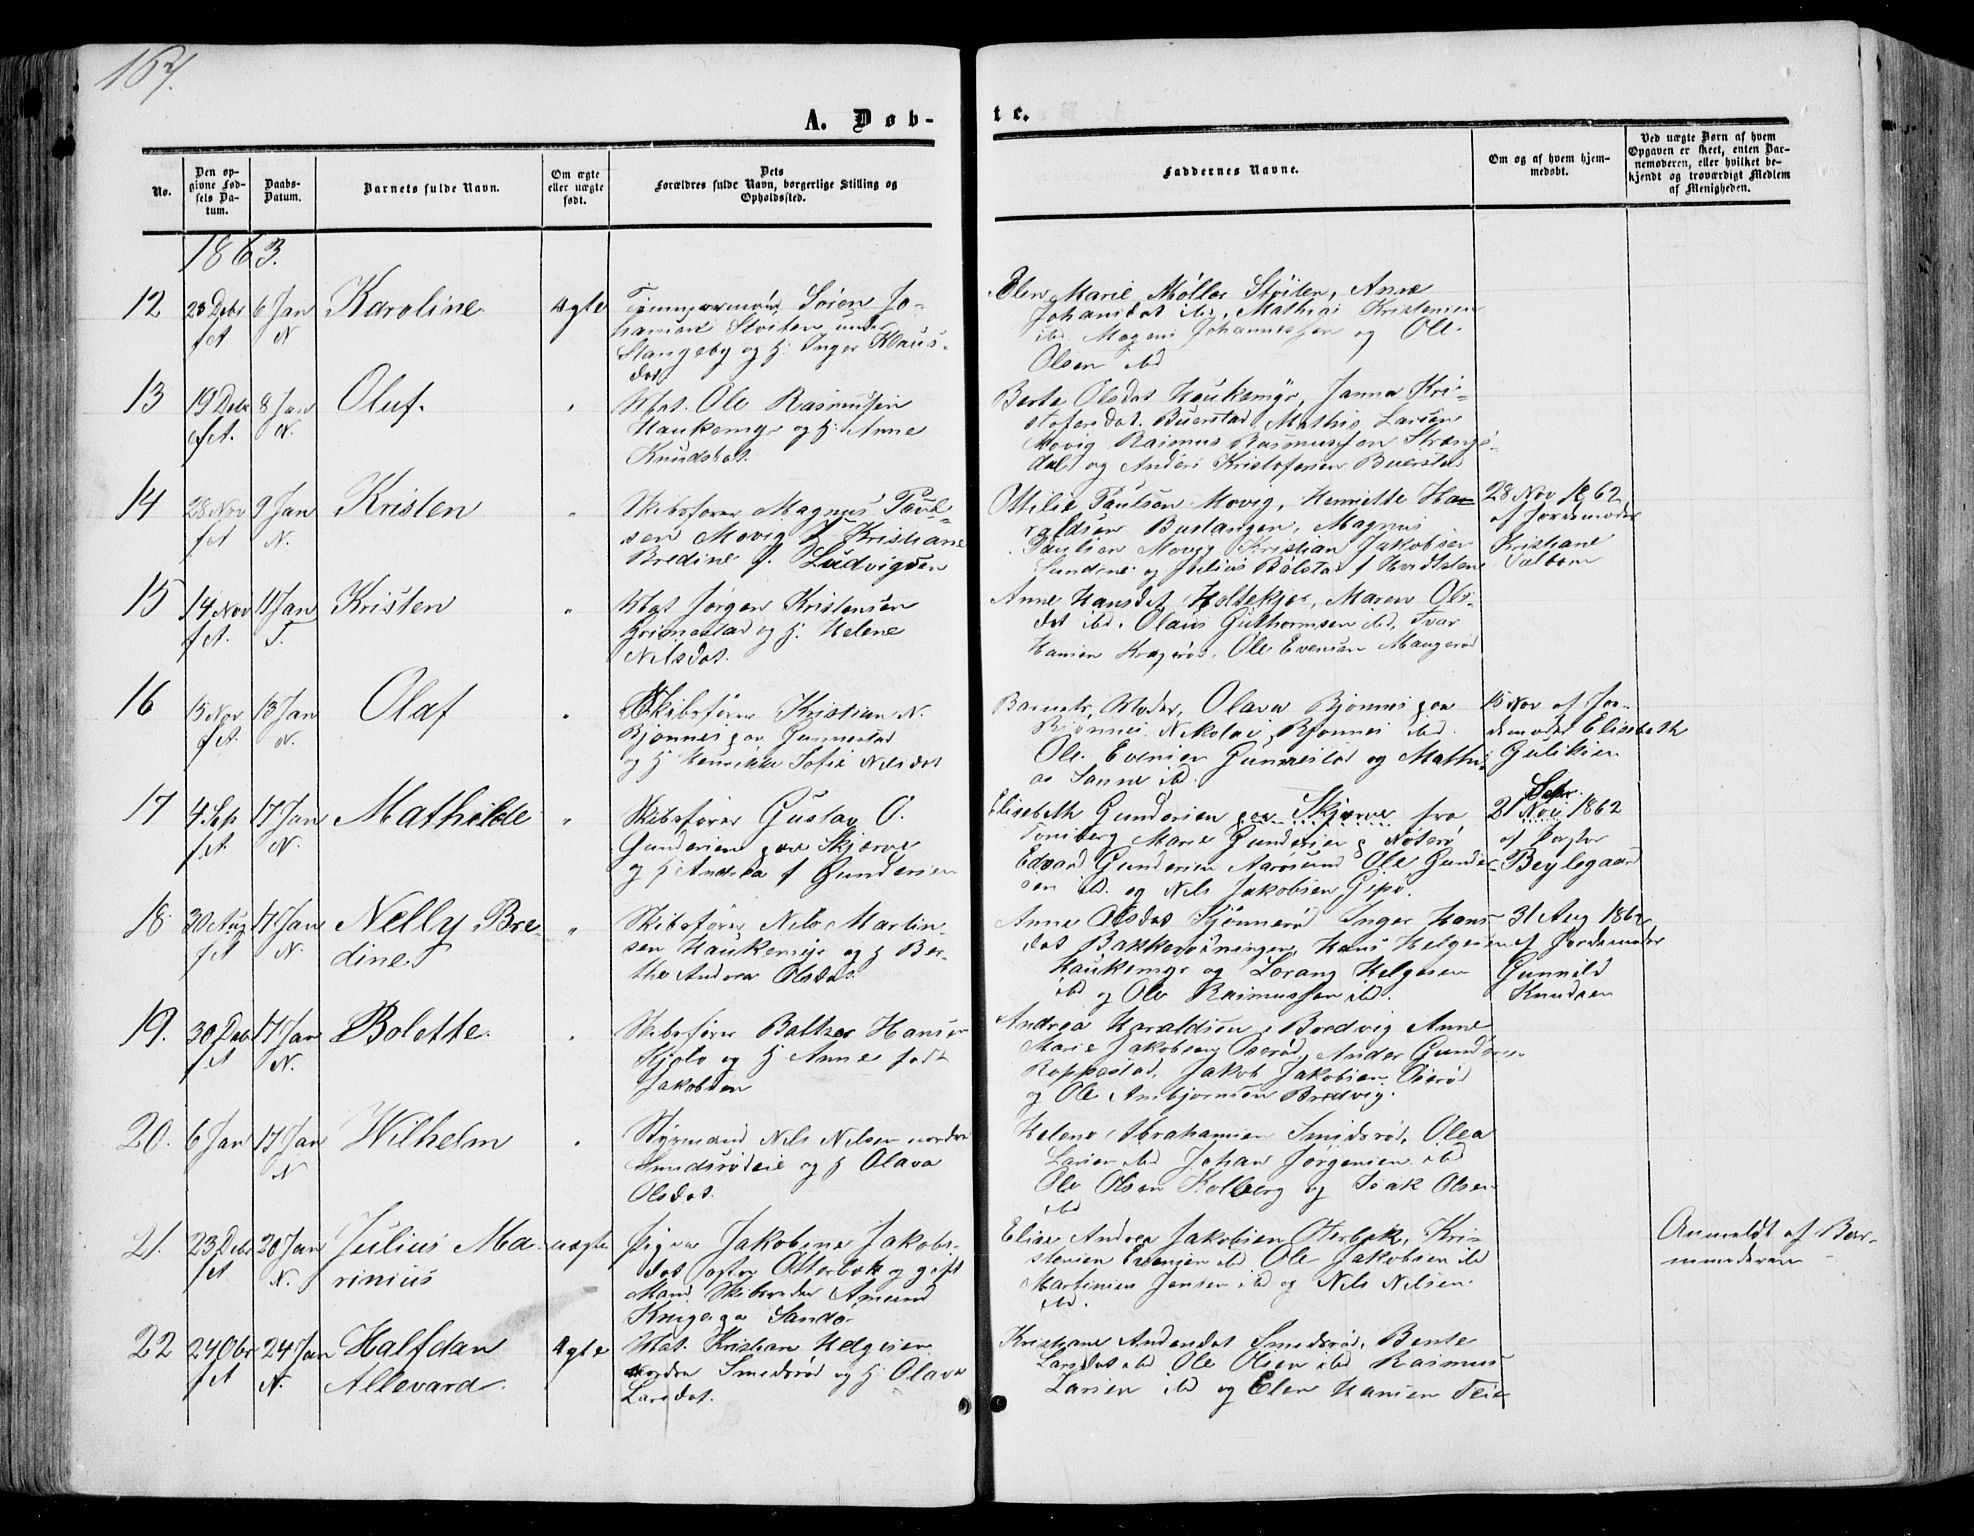 167.
A. Døb-
te.
No.
Den opgivne Fødsels Datum.
Daabs-Datum.
Barnets fulde Navn.
Om ægte eller uægte født.
Dets Forældres fulde Navn, borgerlige Stilling og Opholdssted.
Faddernes Navne.
Om og af hvem hjemmedøbt.
Ved uægte Børn af hvem Opgaven er skeet, enten Barnemoderen, eller hvilket bekjendt og troværdigt Medlem af Menigheden.
1863.
12
23 Debr
6 Jan
Karoline
Ægte
Tømmermand Søren Jo-
hansen Støiten under
Slangeby og H. Inger Klaus-
dat
f A
N
Elen Marie Møller Støiten, Anne
Johansdat ibd, Mathis Kristensen
ibd. Mogens Johannessen og Ole
Olsen ibd
13
19 Debr
8 Jan
Oluf.
"
Mat. Ole Rasmussen
Haukemyr og H. Anne
Knudsdat.
f A.
N.
Berte Olsdat Haukemyr, Janna Kri-
stofersdat. Buerstad Mathis Larsen
Movig Rasmus Rasmussen Strengs-
dal og Anders Kristofersen Buerstad
14
28 Nov
9 Jan
Kristen
"
Skibsfører Magnus Paul-
sen Movig H Kristiane
Bredine f. Ludvigsen
f A
N.
Ottilie Paulsen Movig, Henriette Ha-
raldsen Buslangen, Magnus
Paulsen Movig Kristian Jakobsen
Sundene og Julius Bolstad f Hvidtsten
28 Nov 1862
af Jordemoder
Kristiane
Valbom
15
14 Nov
11 Jan
Kristen
"
Mat Jørgen Kristensen
Grimestad og H. Helene
Nilsdat.
f A.
T.
Anne Hansdat Holtekjær, Maren Ols-
dat ibd. Olaus Guthormsen ibd, Ivar
Hansen Kragerød, Ole Evensen Maugerød
16
15 Nov
13 Jan
Olaf
"
Skibsfører Kristian N.
Bjønnes paa Gunnestad
og H Henrikke Sofie Nilsdat
f A.
N.
Barnets Moder, Olava Bjønnes paa
Bjønnes, Nikolai Bjønnes ibd.
Ole Evensen Gunnestad og Mathi-
as Sanne ibd.
15 Nov af Jor-
demoder Elisabeth
Guliksen
17
4 Sep
17 Jan
Mathilde
"
Skibsfører Gustav O.
Gundersen paa Skjærve
og H Andrea f Gundersen
f A.
N.
Elisabeth Gundersen paa Skjærve fra
Tønsberg Marie Gundersen p Nøterø
Edvard Gundersen Aarøsund Ole Gunder-
sen ibd. og Nils Jakobsen Gipø.
Sepr.
21 Nov 1862
af Pastor
Beylegaard
18.
30 Aug
17 Jan
Nelly Bre-
dine
"
Skibsfører Nils Martin-
sen Haukemyr og H Ber-
the Andrea Olsdat.
f A
N.
Anne Olsdat Skjønnerød Inger Hans-
dat Bakkevæningen, Hans Helgesen
Haukemyr og Lorang Helgesen
ibd og Ole Rasmussen ibd.
31 Aug 1862
af Jordemoder
Gunnild
Knudsen
19.
30 Debr
17 Jan
Bolette.
"
Skibsfører Baltzer Hansen
Kjøle og H Anne født
Jakobsen
f A
N.
Andrea Haraldsen, Bredvig Anne
Marie Jakobsen Oserød, Anders Gunders
Roppestad, Jakob Jakobsen Oserød
og Ole Ambjørnsen Bredvig.
20.
6 Jan
17 Jan
Wilhelm
"
Styrmand Nils Nilsen nordre
Smidsrødeie og H Olava
Olsdat.
N
Helene Abrahamsen Smidsrød, Olea
Larsen ibd Johan Jørgensen ibd
Ole Olsen Kolberg og Isak Olsen
ibd
21.
23 Debr
20 Jan
Julius Ma-
rinius
uægte
Pigen Jakobine Jakobs-
dat Otterbæk og gift
Mand Skibsreder Amund
Sandø
f A
N.
Elise Andrea Jakobsen Oterbæk, Kri-
stensen Evensen ibd Ole Jakobsen ibd
Martinius Jensen ibd og Nils Nilsen
ibd.
Anmeldt af Bar-
nemoderen
22
24 Obr
24 Jan
Halfdan
Allevard.
Ægte
Mat. Kristian Helgesen
nordre Smidsrød og H Olava
Larsdat.
f A
N.
Kristiane Andersdat Smidsrød, Bente
Larsdat ibd Ole Olsen ibd Rasmus
Larsen ibd og Elen Hansen Teie